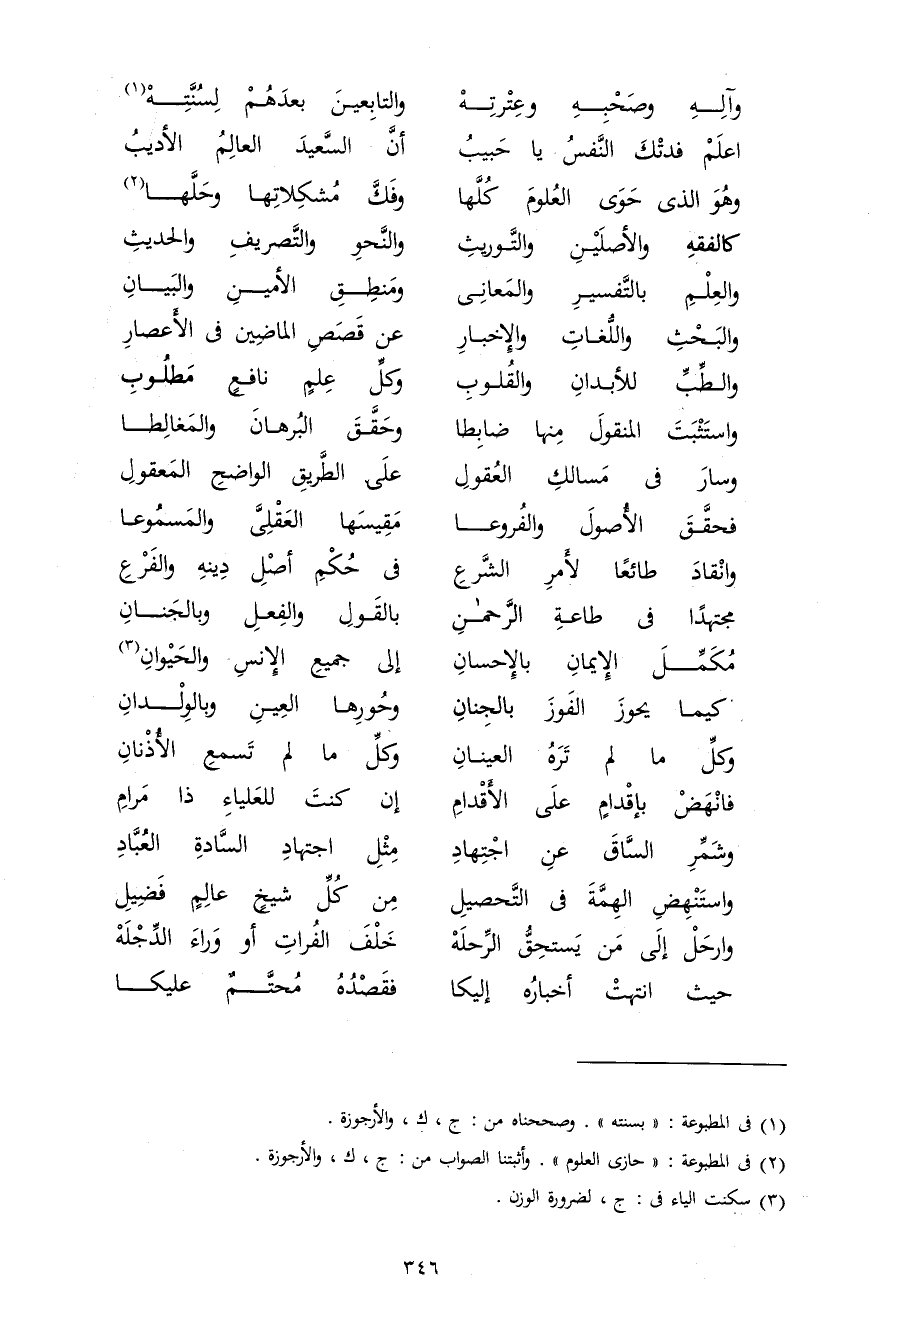 وآلِــهِ وصَحْبِــهِ وعِتْرتِــهْ والتابِعينَ بعدَهُـمْ لِسُنَّتِــهْ(١)
اعلَمْ فدتْكَ النَّفسُ يا حَبيبُ أنَّ السَّعيدَ العالِمُ الأديبُ
وهُوَ الذى حَوَى العُلومَ كُلَّها وفَكَّ مُشكِلاتِهـا وحَلَّهــا(٢)
كالفقهِ والأصلَيْـنِ والتَّوريثِ والنَّحوِ والتَّصريفِ والحديثِ
والعِلْـمِ بالتَّفسيـرِ والمَعانِـى ومَنطِــقِ الأميــنِ والبَيَــانِ
والبَـحْثِ واللُّغـاتِ والإخبـارِ عن قَصَصِ الماضِين فى الأعصارِ
والـطِّبِّ للأبـدانِ والقُلـوبِ وكلِّ عِلمٍ نافـعٍ مَطلُـوبِ
واستَثْبَتَ المنقولَ مِنها ضابِطا وحَقَّـقَ البُرهـانَ والمَغالِطـا
وسارَ فى مَسالكِ العُقولِ علَى الطَّريقِ الواضحِ المَعقولِ
فحقَّـقَ الأُصولَ والفُروعَــا مَقِيسَها العَقْلِىَّ والمَسمُوعـا
وانْقادَ طائعًا لأَمرِ الشَّرعِ فى حُكْمِ أصْلِ دِينِهِ والفَرْعِ
مجتهدًا فى طاعـةِ الرَّحمٰـنِ بالقَـولِ والفِعـلِ وبالجَنــانِ
مُكَمِّــلَ الإيمانِ بالإحسانِ إلى جميعِ الإنسِ والحَيْوانِ(٣)
كيمـا يحوزَ الفَوزَ بالجنانِ وحُورِهـا العِيـنِ وبالوِلْــدانِ
وكلِّ ما لم تَرَهُ العينـانِ وكلِّ ما لم تَسمعِ الأُذْنانِ
فانْهَضْ بإقْدامٍ علَى الأَقْدامِ إن كنتَ للعَلياءِ ذا مَرامِ
وشَمِّرِ السَّاقَ عنِ اجْتِهادِ مِثْلِ اجتهادِ السَّادةِ العُبَّادِ
واستَنْهِضِ الهِمَّةَ فى التَّحصيلِ مِن كُلِّ شيخٍ عالِمٍ فَضِيلِ
وارحَلْ إلَى مَن يَستحِقُّ الرِّحلَهْ خَلْفَ الفُراتِ أو وَراءَ الدِّجْلَهْ
حيث انتهتْ أخبارُه إليكا فقَصْدُهُ مُحتَّــمٌ عليكــا
(١) فى المطبوعة : « بسنته » . وصححناه من : ج ، ك ، والأرجوزة .
(٢) فى المطبوعة : « حازى العلوم » . وأثبتنا الصواب من : ج ، ك ، والأرجوزة .
(٣) سكنت الياء فى : ج ، لضرورة الوزن .
٣٤٦